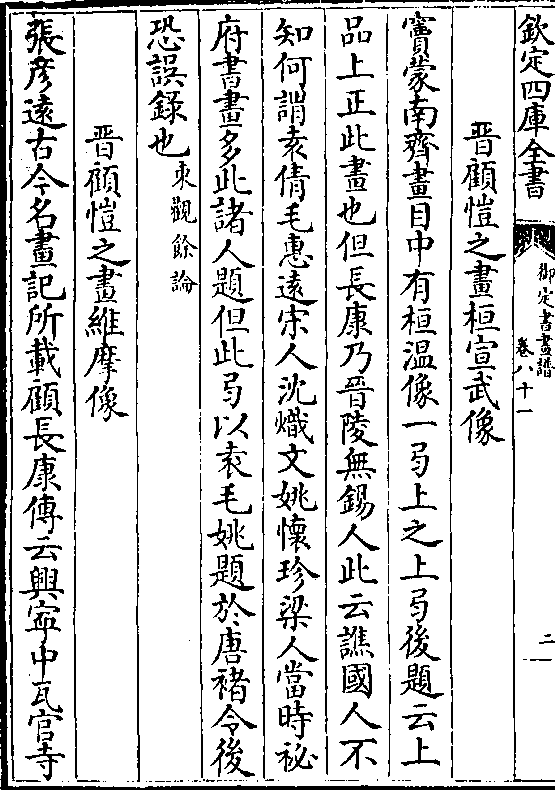 欽定四庫全書
御定書畫譜
卷八十一
二
晉顧愷之畫桓宣武像
竇蒙南齊畫目中有桓溫像一𢎞上之上𢎞後題云上
品上正此畫也但長康乃晉陵無錫人此云譙國人不
知何謂袁倩毛惠遠宋人沈熾文姚懷珍梁人當時祕
府書畫多此諸人題但此𢎞以袁毛姚題於唐褚令後
恐誤錄也東觀餘論
晉顧愷之畫維摩像
張彥遠古今名畫記所載顧長康傳云興寧中瓦官寺